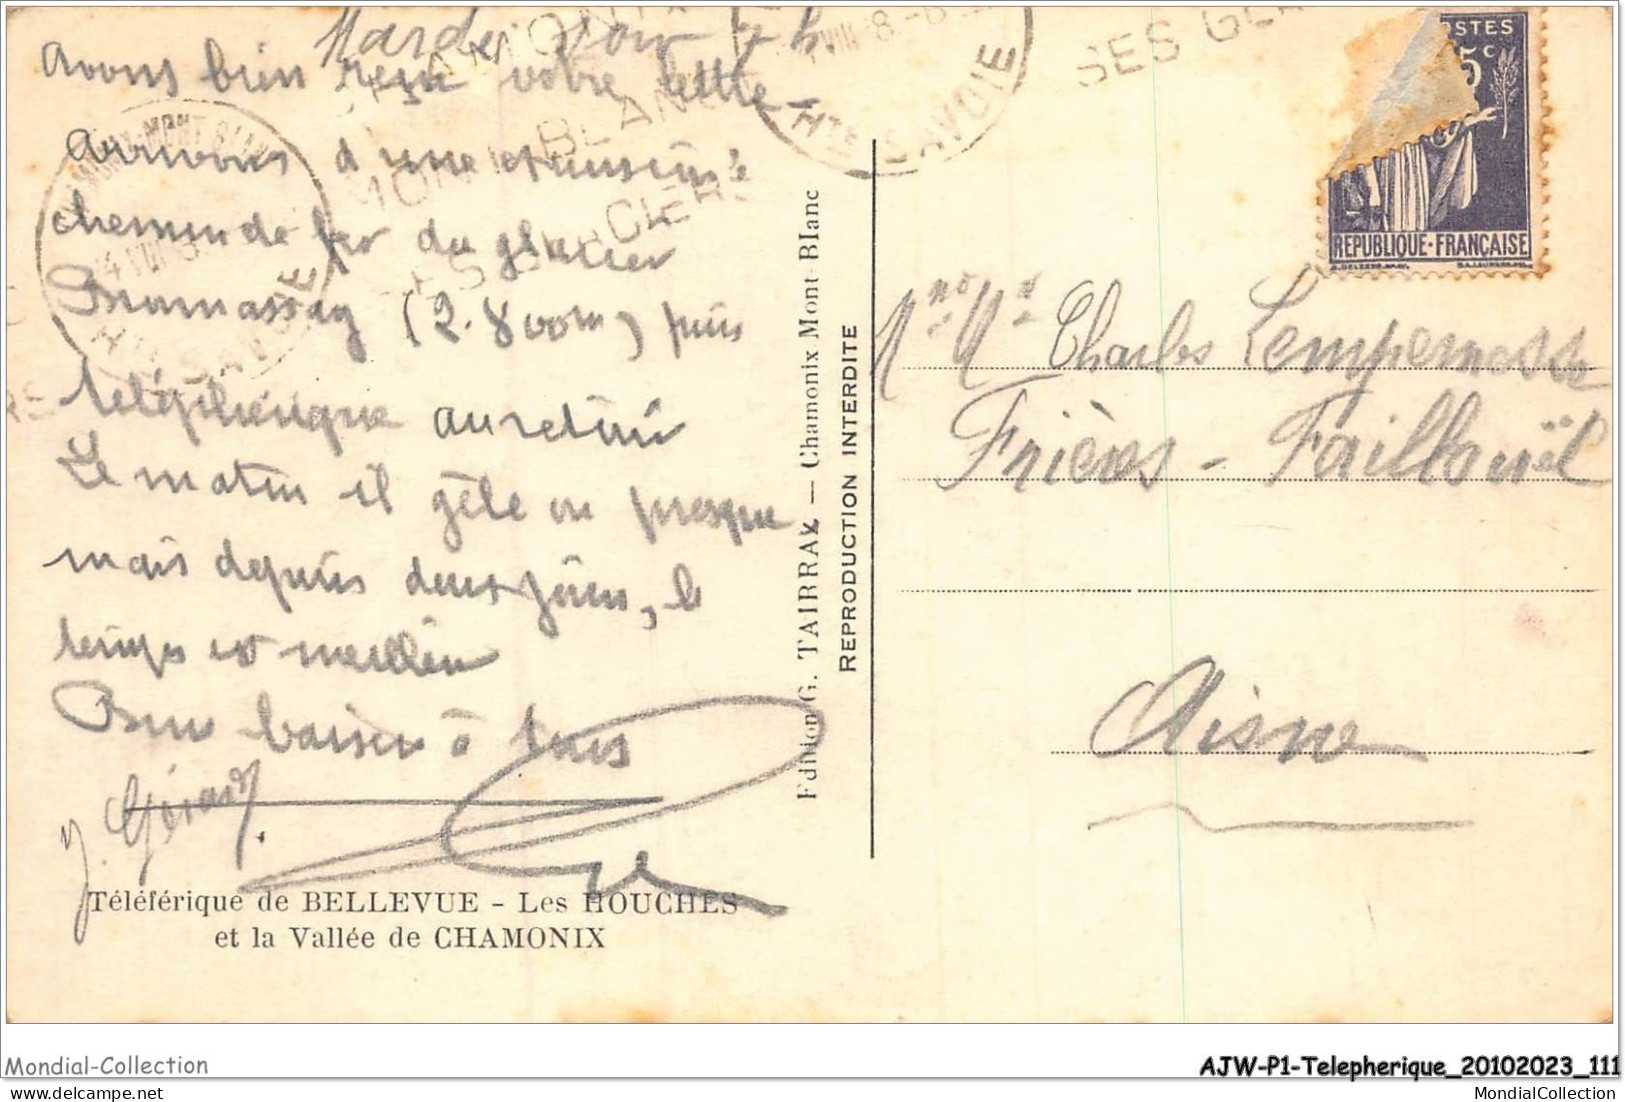 Mardi soir 7 h
Avons bien reçu votre lettre -
Arrivons d'une excursion :
chemin de fer du glacier
Bionnassay (2.800m) puis
téléphérique au retour
Le matin il gèle ou presque
mais depuis deux jours, le
temps est meilleur
Bons baisers à tous
Gérard
Téléférique de BELLEVUE - Les HOUCHES
et la Vallée de CHAMONIX
Edition G. TAIRRAZ — Chamonix Mont-Blanc
REPRODUCTION INTERDITE
CHAMONIX-MONT-BLANC
HTE SAVOIE
HTE SAVOIE
SES GLACIERS
SES GL
POSTES
5c
REPUBLIQUE·FRANÇAISE
Charles Lempernesse
Frières - Faillouël
Aisne
Mondial-Collection
AJW-P1-Telepherique_20102023_111
mondialcollection.delcampe.net
MondialCollection